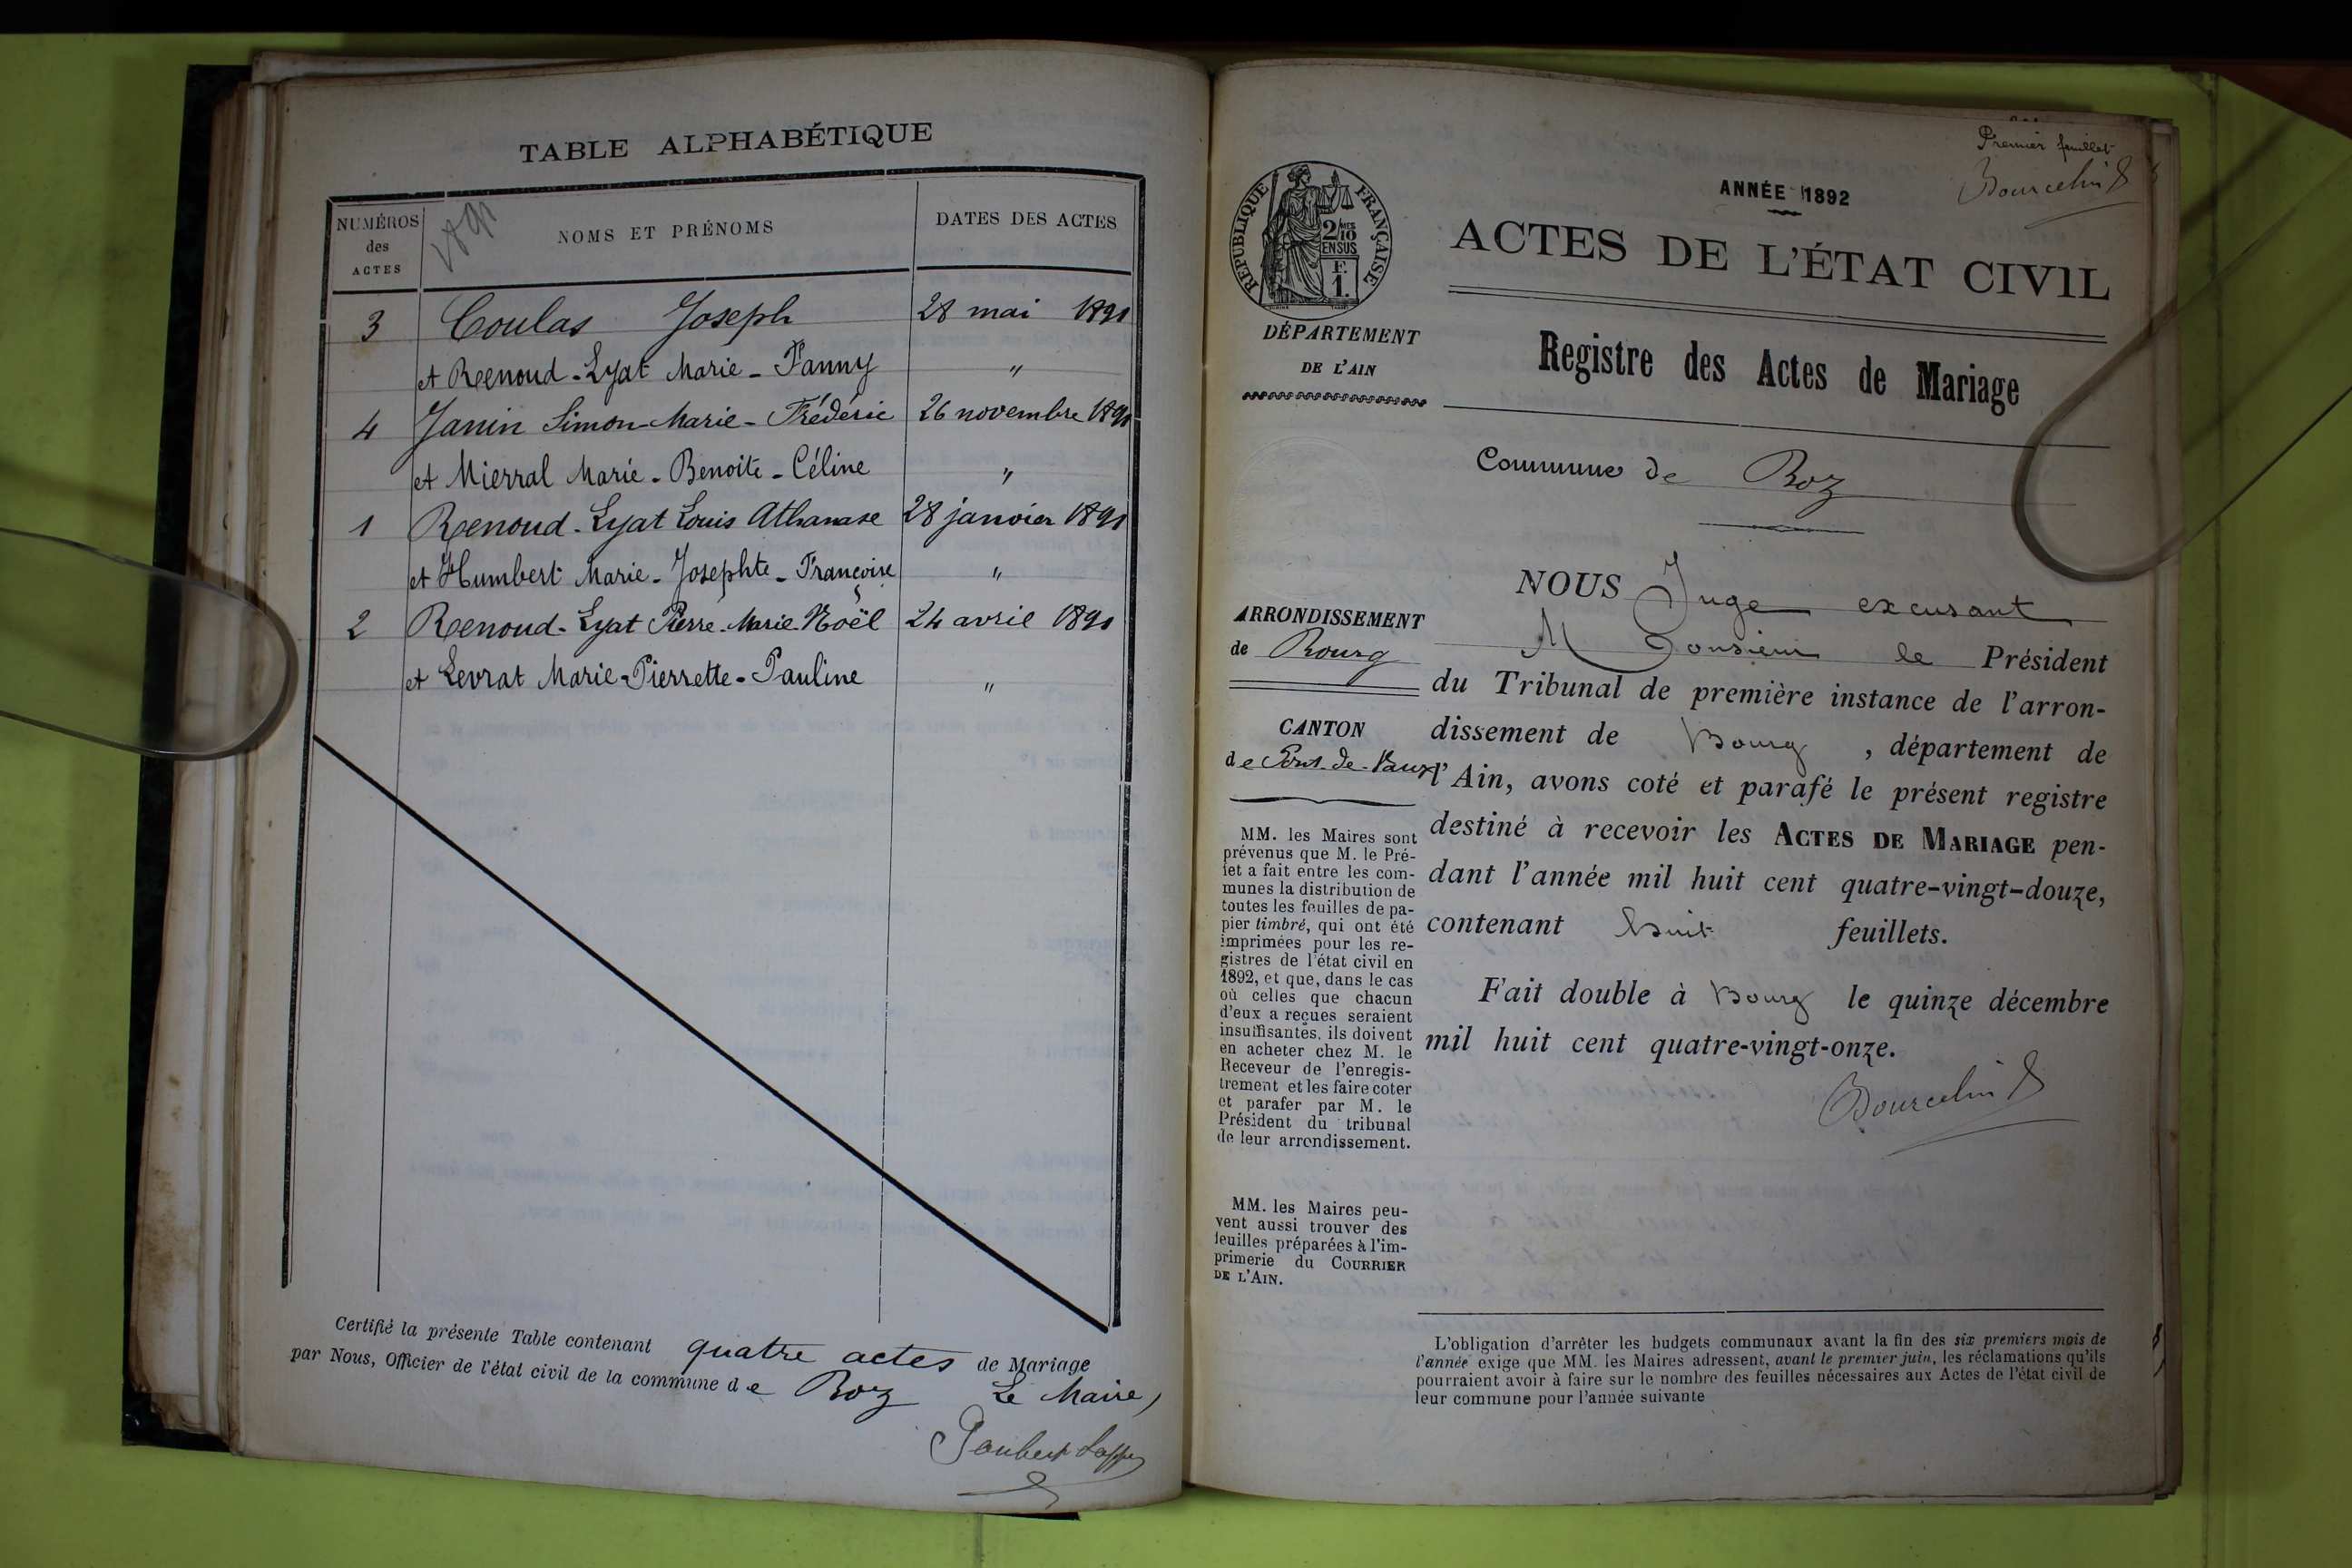 TABLE ALPHABÉTIQUE
1891
NUMÉROS des ACTES
NOMS ET PRÉNOMS
DATES DES ACTES
3 Coulas Joseph 28 mai 1891
et Renoud-Lyat Marie-Fanny "
4 Janin Simon-Marie-Frédéric 26 novembre 1891
et Mierral Marie-Benoite-Céline "
1 Renoud-Lyat Louis Athanase 28 janvier 1891
et Humbert Marie-Josephte-Françoise "
2 Renoud-Lyat Pierre-Marie-Noël 24 avril 1891
et Levrat Marie-Pierrette-Pauline "
Certifié la présente Table contenant quatre actes de Mariage
par Nous, Officier de l'état civil de la commune de Boz Le Maire,
Premier feuillet
Bourcelin
ANNÉE 1892
ACTES DE L'ÉTAT CIVIL
RÉPUBLIQUE FRANÇAISE
2/10 MES
EN SUS
F.
1.
DÉPARTEMENT
DE L'AIN
Registre des Actes de Mariage
Commune de Boz
ARRONDISSEMENT
de Bourg
CANTON
de Pont-de-Vaux
MM. les Maires sont
prévenus que M. le Pré-
fet a fait entre les com-
munes la distribution de
toutes les feuilles de pa-
pier timbré, qui ont été
imprimées pour les re-
gistres de l'état civil en
1892, et que, dans le cas
où celles que chacun
d'eux a reçues seraient
insuffisantes, ils doivent
en acheter chez M. le
Receveur de l'enregis-
trement et les faire coter
et parafer par M. le
Président du tribunal
de leur arrondissement.
MM. les Maires peu-
vent aussi trouver des
feuilles préparées à l'im-
primerie du COURRIER
DE L'AIN.
NOUS Juge excusant
Monsieur le Président
du Tribunal de première instance de l'arron-
dissement de Bourg, département de
l'Ain, avons coté et parafé le présent registre
destiné à recevoir les ACTES DE MARIAGE pen-
dant l'année mil huit cent quatre-vingt-douze,
contenant huit feuillets.
Fait double à Bourg le quinze décembre
mil huit cent quatre-vingt-onze.
Bourcelin
L'obligation d'arrêter les budgets communaux avant la fin des six premiers mois de
l'année exige que MM. les Maires adressent, avant le premier juin, les réclamations qu'ils
pourraient avoir à faire sur le nombre des feuilles nécessaires aux Actes de l'état civil de
leur commune pour l'année suivante